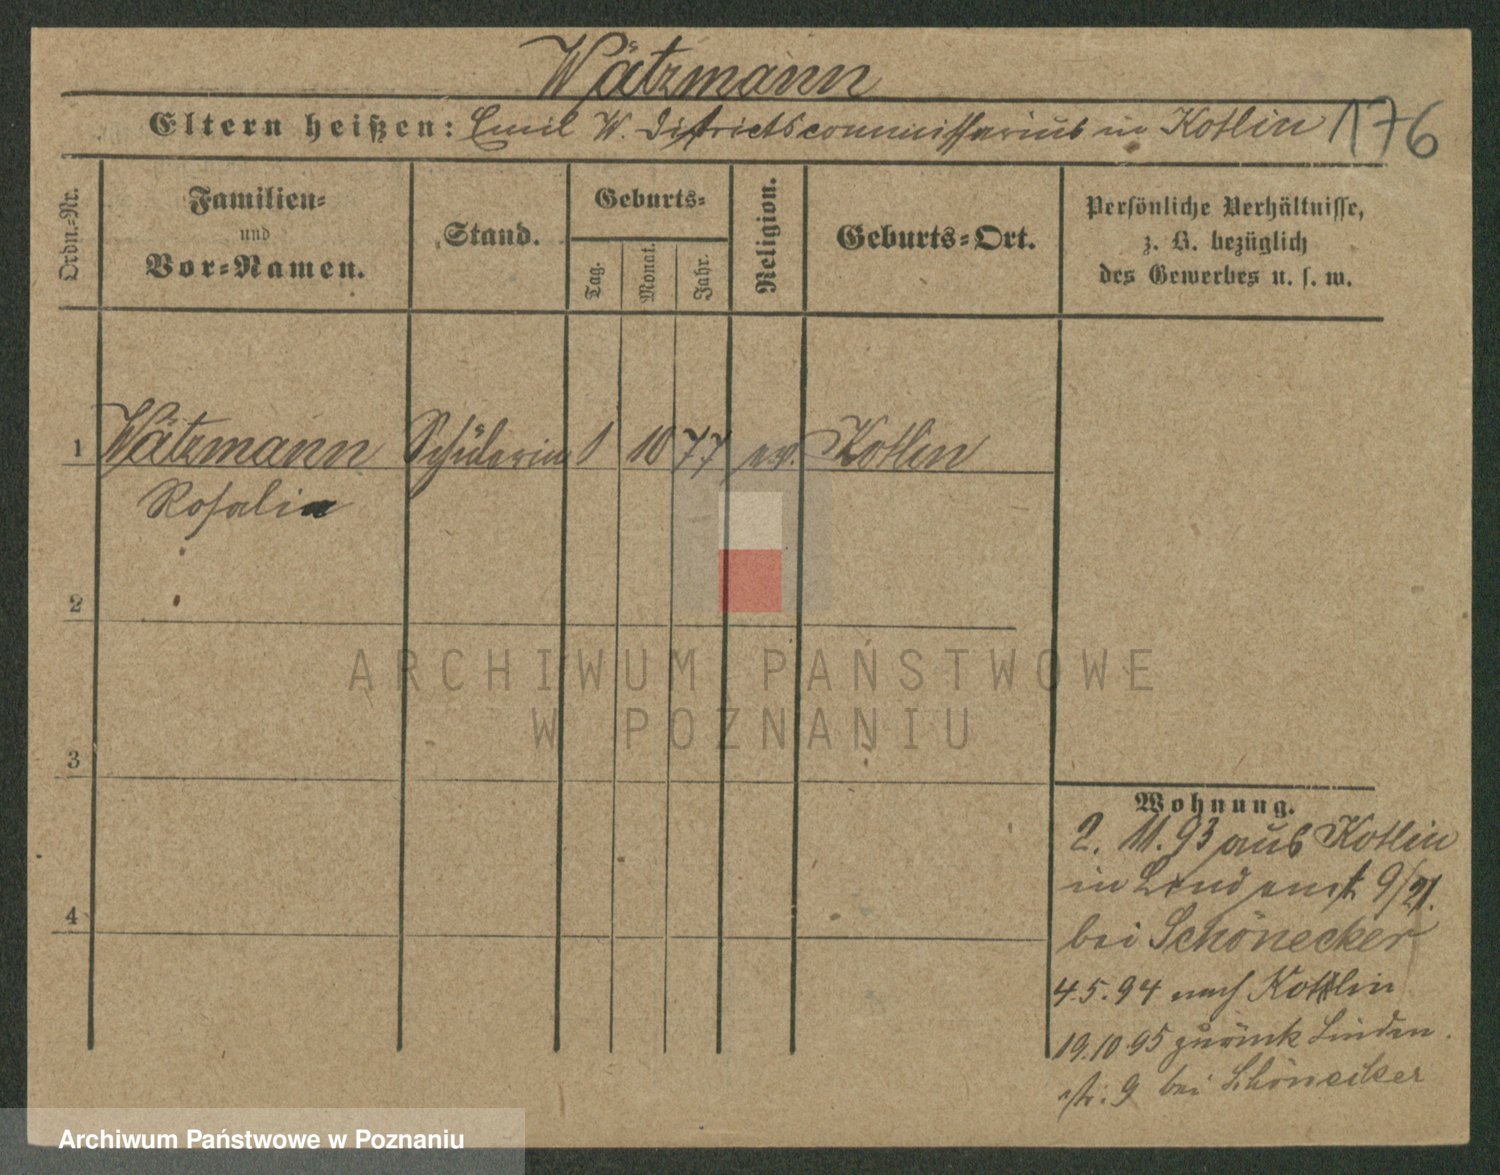 Wätzmann
Eltern heißen: Emil W. Districtscommissarius in Kotlin 176
Ordn.-Nr.
Familien-
und
Vor-Namen.
Stand.
Geburts-
Tag.
Monat.
Jahr.
Religion.
Geburts-Ort.
Persönliche Verhältnisse,
z. B. bezüglich
des Gewerbes u. s. w.
1 Wätzmann Schülerin 1 10 77 ev. Kotlin
Rosalia
2
3
4
Wohnung.
2. 11. 93 aus Kotlin
in 9/21.
bei Schönecker
4.5.94 nach Kotlin
19.10.95 zurück Linden
str. 9 bei Schönecker
ARCHIWUM PAŃSTWOWE
W POZNANIU
Archiwum Państwowe w Poznaniu